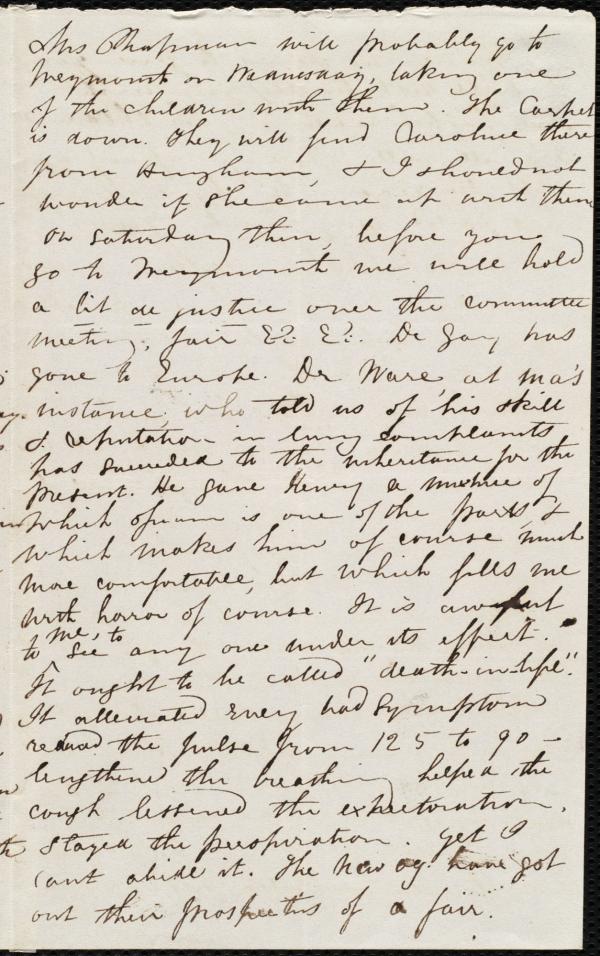 Mrs Chapman will probably go to
Weymouth on Wednesday, taking one
of the children with them. The Carpet
is down. They will find Caroline there
from Hingham, & I should not
wonder if she came up with them
on Saturday then, before you
go to Weymouth we will hold
a lit de justice over the committee
meeting, fair &c. &c. Dr Gay has
gone to Europe. Dr Ware, at ma's
instance, who told us of his skill
& reputation in lung complaints
has succeeded to the inheritance for the
present. He gave Henry a mixture of
which opium is one of the parts, &
which makes him of course much
more comfortable, but which fills me
with horror of course. It is awful
to me, to see any one under its effect.
It ought to be called "death-in-life".
It alleviated every bad symptom
reduced the pulse from 125 to 90 –
lengthened the breathing helped the
cough lessened the expectoration,
stayed the perspiration. Yet I
can't abide it. The New org. have got
out their prospectus of a fair.